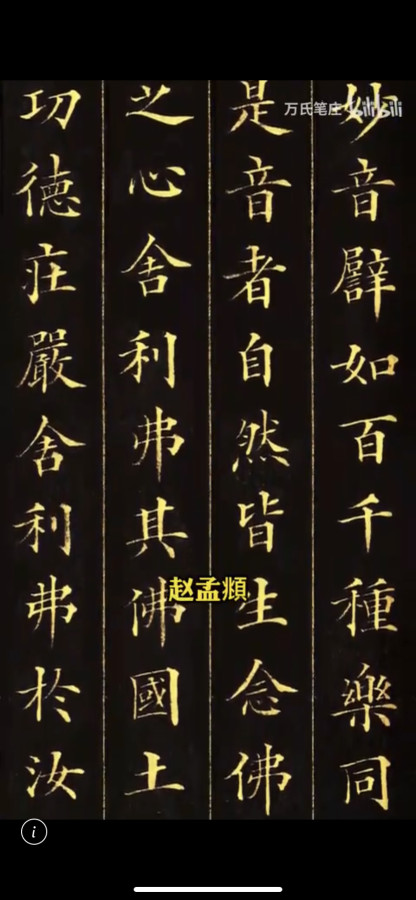 万氏笔庄 bilibili
妙音譬如百千種樂同
是音者自然皆生念佛
之心舍利弗其佛國土
功德莊嚴舍利弗於汝
赵孟頫
i